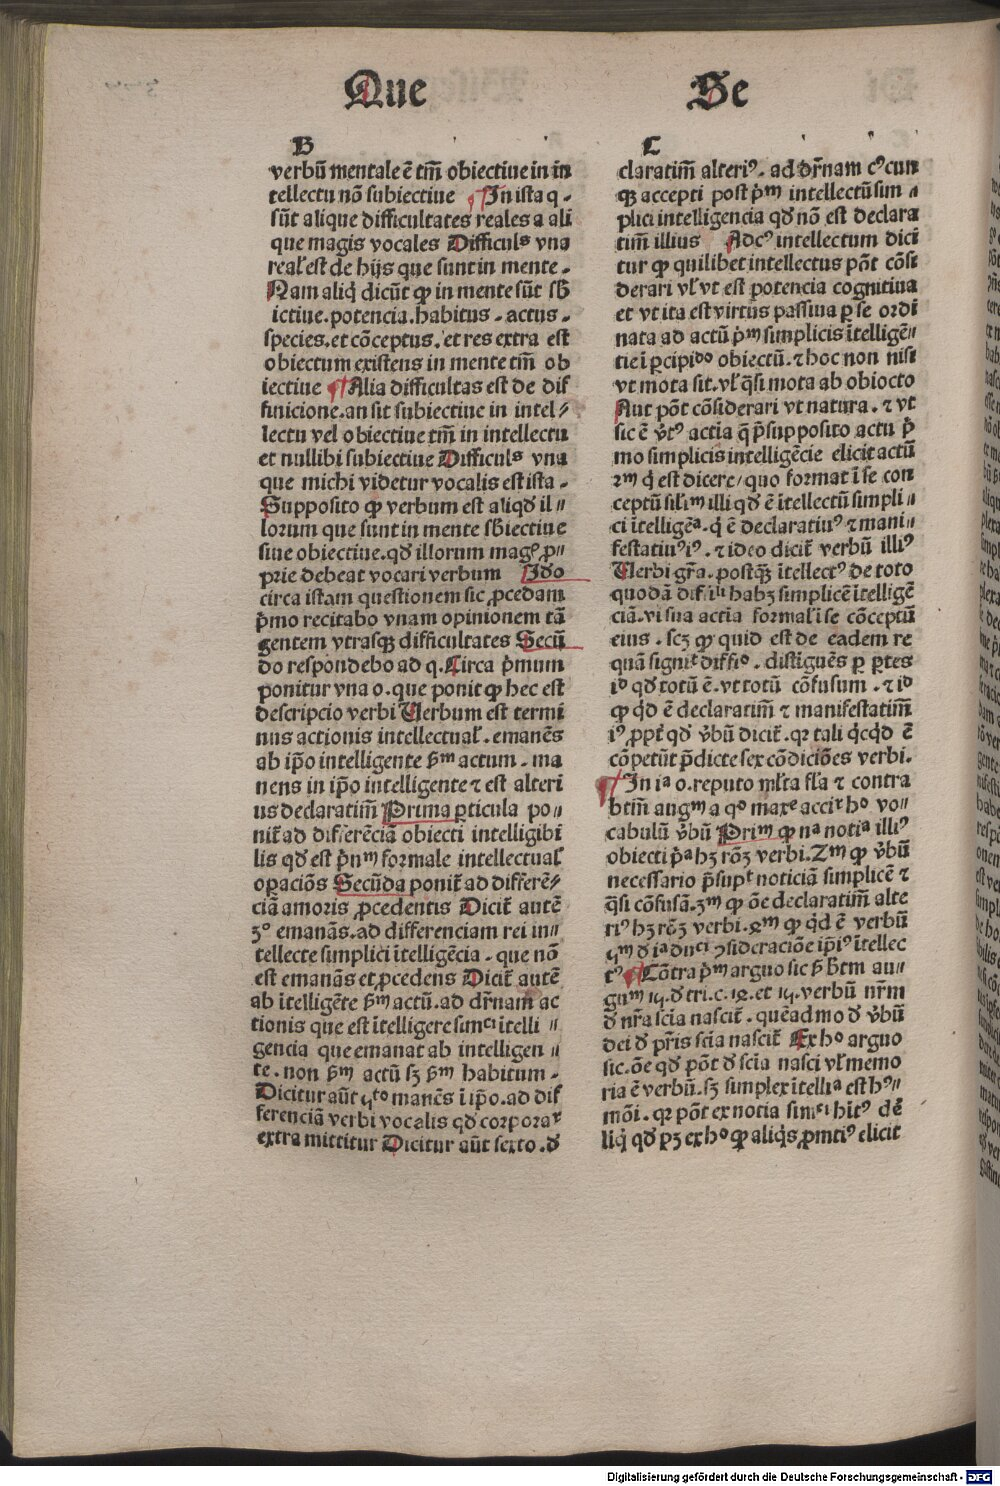 Que Se
B
verbū mentale ē tm̄ obiectiue in in
tellectu nō subiectiue ¶ In ista q.
sūt alique difficultates reales a ali
que magis vocales Difficuls vna
real̕ est de hijs que sunt in mente.
Nam aliq̇ dicūt ꝙ in mente sūt sb̄
ictiue.potencia.habitus.actus.
species.et cōceptus.et res extra est
obiectum existens in mente tm̄ ob
iectiue ¶ Alia difficultas est de dif
finicione.an sit subiectiue in intel⸗
lectu vel obiectiue tm̄ in intellectu
et nullibi subiectiue Difficuls vna
que michi videtur vocalis est ista.
Supposito ꝙ verbum est aliqd̕ il⸗
lorum que sunt in mente sb̄iectiue
siue obiectiue.qd̕ illorum magꝭ ꝓ⸗
prie debeat vocari verbum Ido
circa istam questionem sic ꝓcedam
p̄mo recitabo vnam opinionem tā
gentem vtrasqꝫ difficultates Secū
do respondebo ad q. Circa p̄mum
ponitur vna o.que ponit ꝙ hec est
descripcio verbi Verbum est termi
nus actionis intellectual̕.emanēs
ab ip̄o intelligente ẜm actum.ma
nens in ip̄o intelligente ⁊ est alteri
us declaratim̄ Prima ꝑticula po⸗
nit̕ ad differēciā obiecti intelligibi
lis qd̕ est p̄nm formale intellectual̕
oꝑaciōs Secūda ponit̕ ad differē⸗
ciā amoris ꝓcedentis Dicit̕ autē
3o emanās.ad differenciam rei in⸗
tellecte simplici ītelligēcia.que nō
est emanās et ꝓcedens Dicit̕ autē
ab ītelligēte ẜm actū.ad dr̄nam ac
tionis que est ītelligere simci ītelli⸗
gencia que emanat ab intelligen⸗
te.non ẜm actū sꝫ ẜm habitum.
Dicitur aūt 4to manēs ī ip̄o.ad dif
ferenciā verbi vocalis qd̕ corporar
extra mittitur Dicitur aūt sexto.d̕
C
claratim̄ alteriꝰ.ad dr̄nam cꝰcun
qꝫ accepti post p̄m intellectū sim⸗
plici intelligencia qd̕ nō est declara
tim̄ illius Adcꝰ intellectum dici
tur ꝙ quilibet intellectus pōt cōsi
derari vl̕ vt est potencia cognitiua
et vt ita est virtus passiua ꝑ se ordi
nata ad actū p̄m simplicis ītelligē⸗
tie ī ꝑcipido obiectū.⁊ hoc non nisi
vt mota sit.vl̕ q̄si mota ab obiocto
Aut pōt cōsiderari vt natura.⁊ vt
sic ē v̇tꝰ actīa q̄ p̄supposito actu p̄
mo simplicis intelligēcie elicit actū
2m q̇ est dicere/quo format ī se con
ceptū sil̕im illi qd̕ ē ītellectū simpli⸗
ci ītelligēa.q̇ ē declaratiuꝰ ⁊ mani⸗
festatiuꝰ iꝰ.⁊ ideo dicit̕ verbū illiꝰ
Verbi gr̄a.postqꝫ̄ ītellectꝰ de toto
quodā dif.ili habꝫ simplicē ītelligē
ciā.vi sua actīa formal̕ ī se cōceptū
eius.scꝫ ꝙ quid est de eadem re
quā signit diffio.distīguēs ꝑ ꝑtes
io qd̕ totū ē.vt totū cōfusum.⁊ io
ꝙ q̇d ē declaratim̄ ⁊ manifestatim̄
iꝰ ꝓpt̕ qd̕ v̇bū dicit̕.qꝛ tali q̇cq̇d ē
cōpetūt p̄dicte sex cōdiciōes verbi.
¶ In ia o.reputo ml̕ta fl̕a ⁊ contra
btm̄ augm a qo maxe accir ho vo⸗
cabulū v̇bū Prim ꝙ na notia illiꝰ
obiecti p̄a hꝫ rōꝫ verbi. 2m ꝙ v̇bū
necessario p̄supt noticiā simplicē ⁊
q̄si cōfusā.3m ꝙ ōe declaratim̄ alte
riꝰ hꝫ rōꝫ verbi.4m ꝙ q̇d ē verbū
5m d̕ ia dnci ꝯsideraciōe ip̄iꝰ ītellec
tꝰ ¶ Cōtra p̄m arguo sic ẜ b̄tm au⸗
gum 15.d̕ tri.c.14.et 15.verbū nr̄m
d̕ nr̄a scīa nascit̕.quēadmod̕ v̇bū
dei d̕ pr̄is scīa nascit̕ Ex ho arguo
sic.ōe qd̕ pōt d̕ scīa nasci vl̕ memo
ria ē verbū.sꝫ simplex ītellia est hꝰ⸗
mōi.qꝛ pōt ex notia simci hit̕ꝰ dē
liq̇ qd̕ pꝫ ex ho ꝙ aliq̇s ꝓmtiꝰ elicit
Digitalisierung gefördert durch die Deutsche Forschungsgemeinschaft - DFG